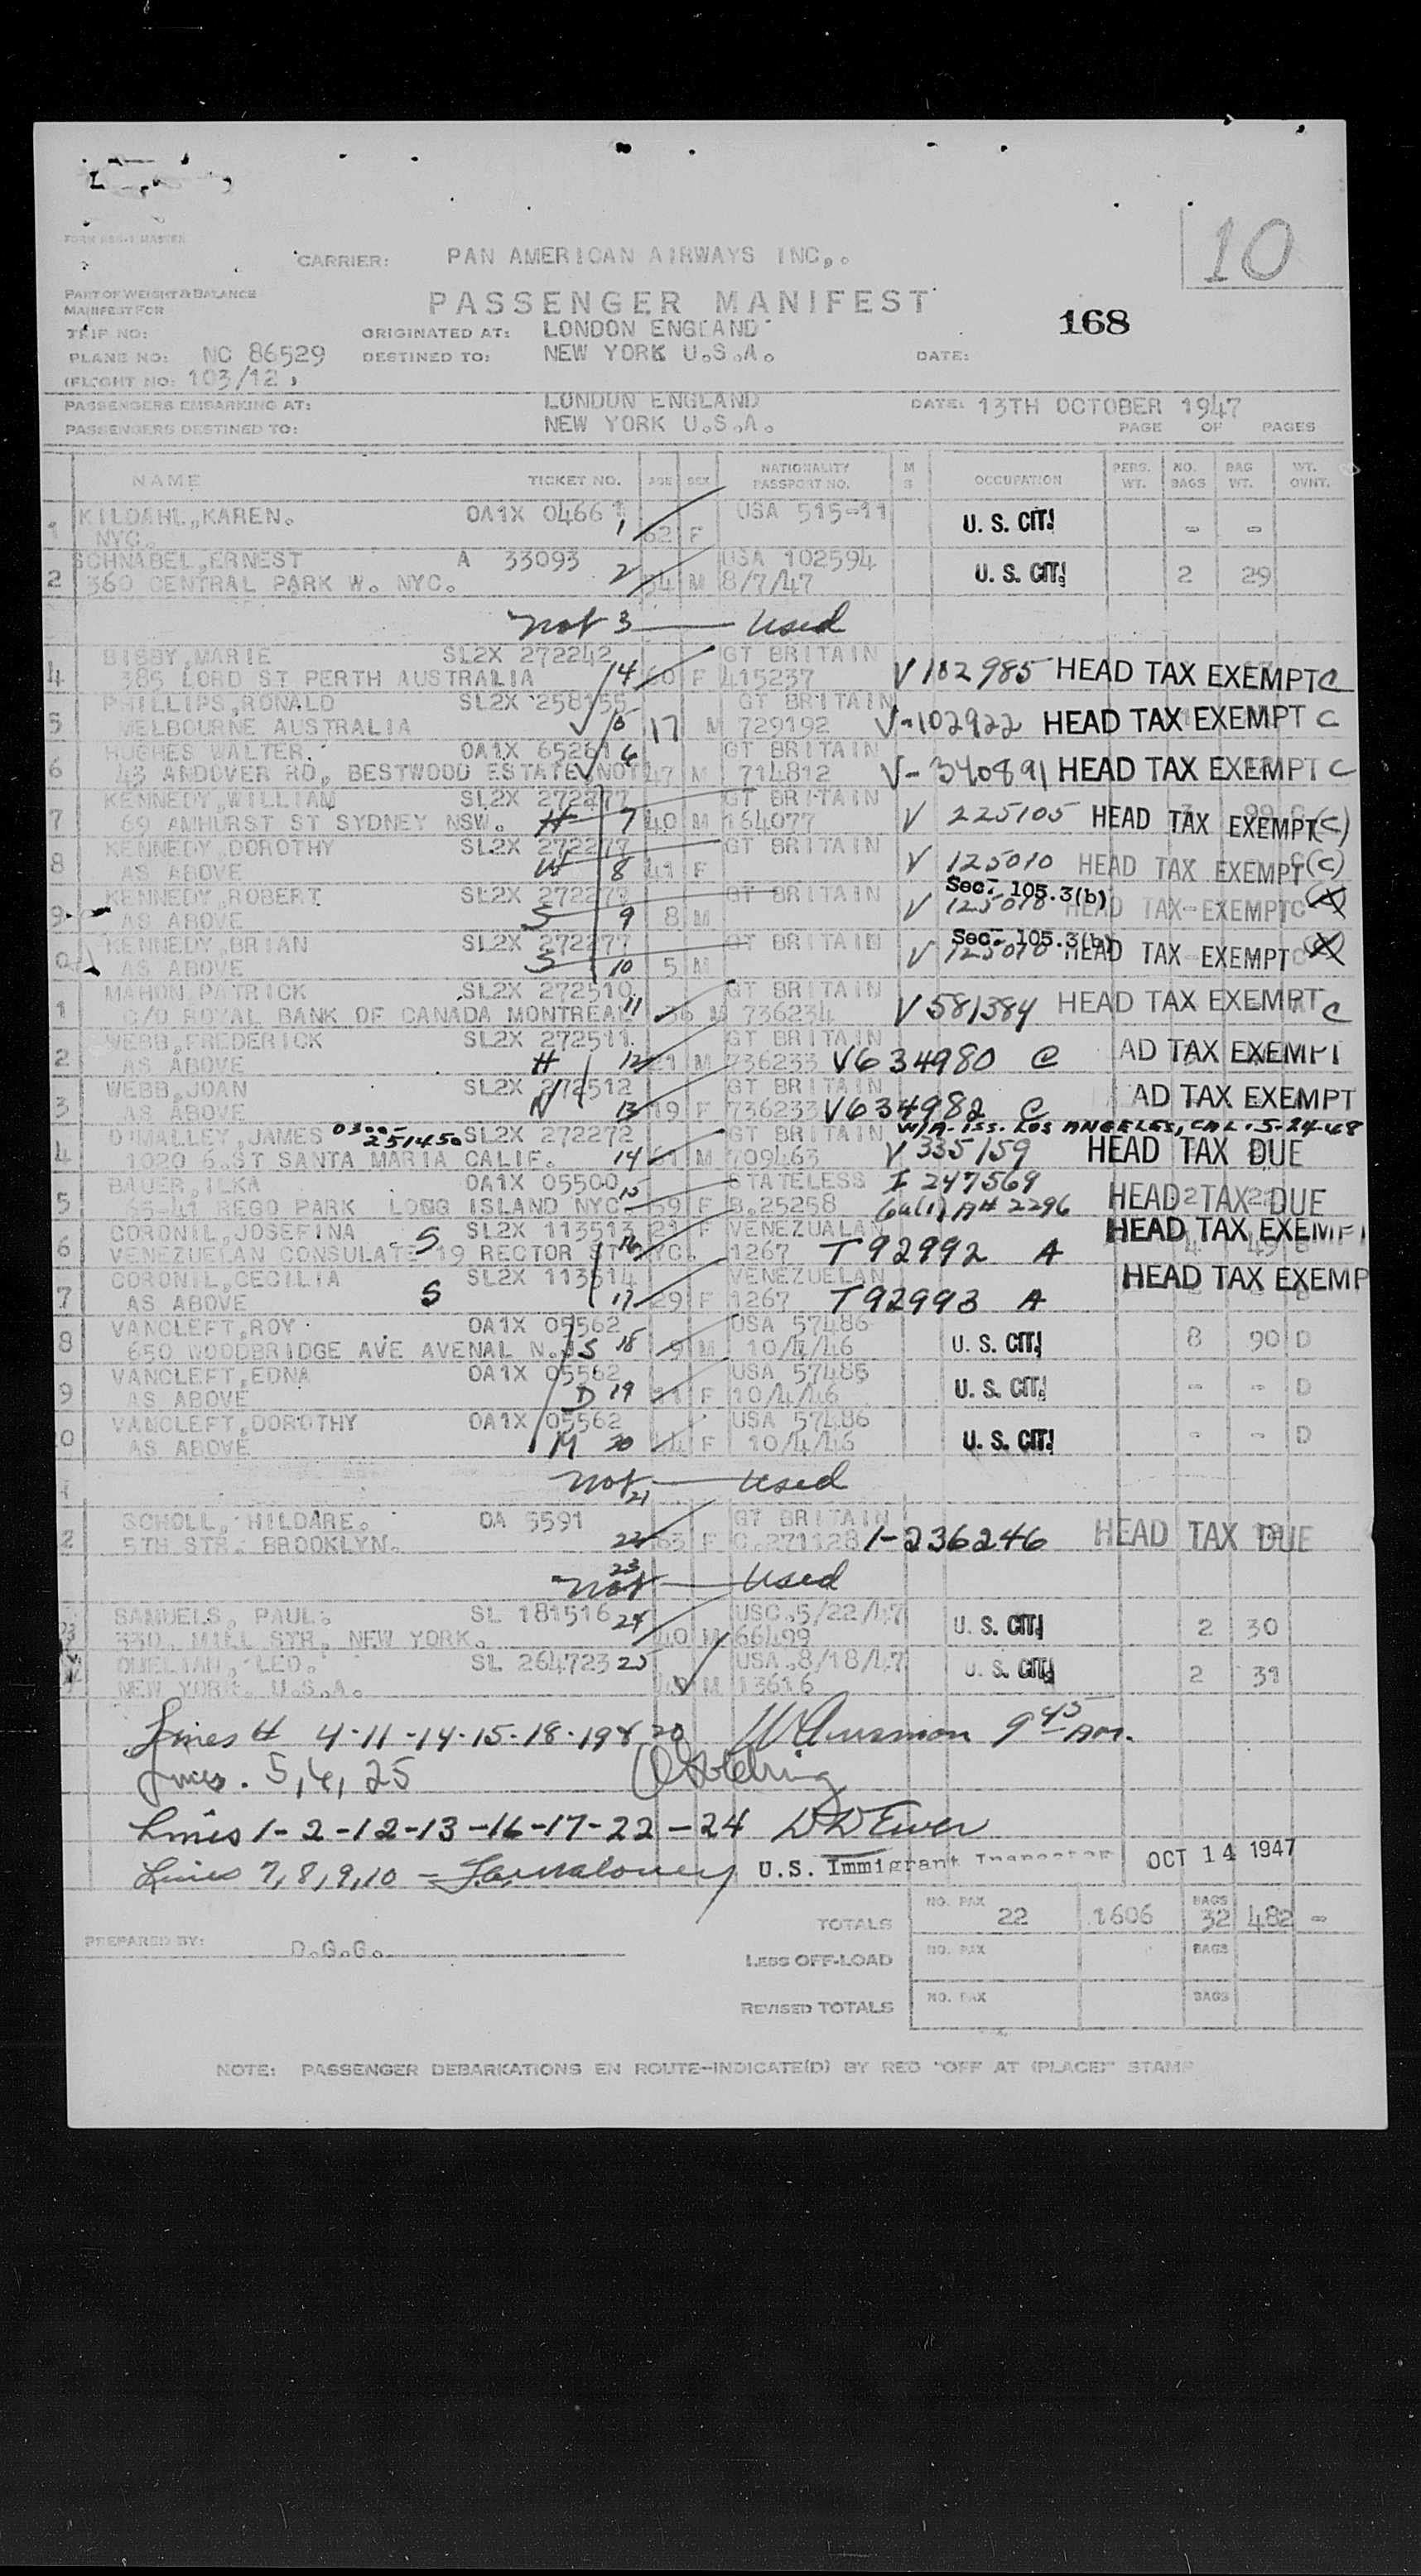 10
FORM MASTER
CARRIER: PAN AMERICAN AIRWAYS INC,.
PART OF WEIGHT & BALANCE
MANIFEST FOR
PASSENGER MANIFEST
168
TRIP NO: ORIGINATED AT: LONDON ENGLAND
PLANE NO: NC 86529 DESTINED TO: NEW YORK U.S.A. DATE:
(FLIGHT NO: 103/12 )
PASSENGERS EMBARKING AT: LONDON ENGLAND DATE: 13TH OCTOBER 1947
PASSENGERS DESTINED TO: NEW YORK U.S.A. PAGE OF PAGES
NAME TICKET NO. AGE SEX NATIONALITY PASSPORT NO. M S OCCUPATION PERS. WT. NO. BAGS BAG WT. WT. OVNT.
1 KILDAHL,KAREN. OA1X 04661 USA 515-11 U. S. CIT! - -
NYC. 1 62 F
SCHNABEL,ERNEST A 33093 USA 102594
2 360 CENTRAL PARK W. NYC. 2 54 M 8/7/47 U. S. CIT! 2 29
Not 3 — Used
BISBY,MARIE SL2X 272242 GT BRITAIN
4 385 LORD ST PERTH AUSTRALIA 14 60 F 415237 V 102985 HEAD TAX EXEMPT C
PHILLIPS,RONALD SL2X 258155 GT BRITAIN
5 MELBOURNE AUSTRALIA 5 17 M 729192 V-102922 HEAD TAX EXEMPT C
HUGHES WALTER. OA1X 65261 GT BRITAIN
6 43 ANDOVER RD, BESTWOOD ESTATE,NOT 6 47 M 714812 V-340891 HEAD TAX EXEMPT C
KENNEDY,WILLIAM SL2X 272277 GT BRITAIN
7 69 AMHURST ST SYDNEY NSW. H 7 40 M 164077 V 225105 HEAD TAX EXEMPT (C)
KENNEDY,DOROTHY SL2X 272277 GT BRITAIN
8 AS ABOVE W 8 41 F V 125010 HEAD TAX EXEMPT (C)
KENNEDY,ROBERT SL2X 272277 GT BRITAIN Sec. 105.3(b)
9 AS ABOVE S 9 8 M V 125010 HEAD TAX EXEMPT C
KENNEDY,BRIAN SL2X 272277 GT BRITAIN Sec. 105.3(b)
0 AS ABOVE S 10 5 M V 125010 HEAD TAX EXEMPT C
MAHON PATRICK SL2X 272510 GT BRITAIN
1 C/O ROYAL BANK OF CANADA MONTREAL 11 36 M 736234 V 581384 HEAD TAX EXEMPT C
WEBB,FREDERICK SL2X 272511 GT BRITAIN
2 AS ABOVE H 12 21 M 736233 V634980 C AD TAX EXEMPT
WEBB,JOAN SL2X 272512 GT BRITAIN
3 AS ABOVE W 13 19 F 736233 V634982 C AD TAX EXEMPT
O'MALLEY,JAMES 0300-251450 SL2X 272272 GT BRITAIN W/A-iss. LOS ANGELES, CAL. 5-24-48
4 1020 6.ST SANTA MARIA CALIF. 14 61 M 709463 V 335159 HEAD TAX DUE
BAUER,ILKA OA1X 05500 STATELESS I 247569
5 65-41 REGO PARK LONG ISLAND NYC 15 59 F B.25258 6a(1) A# 2296 HEAD TAX DUE
CORONIL,JOSEFINA S SL2X 113513 21 F VENEZUALAN HEAD TAX EXEMPT
6 VENEZUELAN CONSULATE 19 RECTOR ST NYC. 16 1267 T92992 A
CORONIL,CECILIA SL2X 113514 VENEZUELAN HEAD TAX EXEMP
7 AS ABOVE S 17 29 F 1267 T92993 A
VANCLEFT,ROY OA1X 05562 USA 57486
8 650 WOODBRIDGE AVE AVENAL N.J S 18 9 M 10/4/46 U. S. CIT! 8 90 D
VANCLEFT,EDNA OA1X 05562 USA 57485
9 AS ABOVE D 19 11 F 10/4/46 U. S. CIT! - - D
VANCLEFT,DOROTHY OA1X 05562 USA 57486
0 AS ABOVE M 20 44 F 10/4/46 U. S. CIT! - - D
Not 21 — Used
SCHOLL, HILDARE. OA 5591 GT BRITAIN
2 5TH STR. BROOKLYN. 22 63 F C.271128 1-236246 HEAD TAX DUE
23
Not — Used
SAMUELS, PAUL. SL 181516 24 USC.5/22/47
330. MILL STR. NEW YORK. 40 M 66499 U. S. CIT! 2 30
OUELIAN, LEO. SL 264723 25 USA.8/18/47
NEW YORK. U.S.A. M 13616 U. S. CIT! 2 39
Lines # 4-11-14-15-18-19 & 20 9 45 AM.
Lines. 5, 6, 25
Lines 1-2-12-13-16-17-22-24 D D Ewer
Lines 7,8,9,10 - J.A. Maloney U.S. Immigrant Inspector OCT 14 1947
TOTALS NO. PAX 22 1606 BAGS 32 482 -
PREPARED BY: D.G.G.
LESS OFF-LOAD NO. PAX BAGS
REVISED TOTALS NO. PAX BAGS
NOTE: PASSENGER DEBARKATIONS EN ROUTE-INDICATE(D) BY RED "OFF AT (PLACE)" STAMP